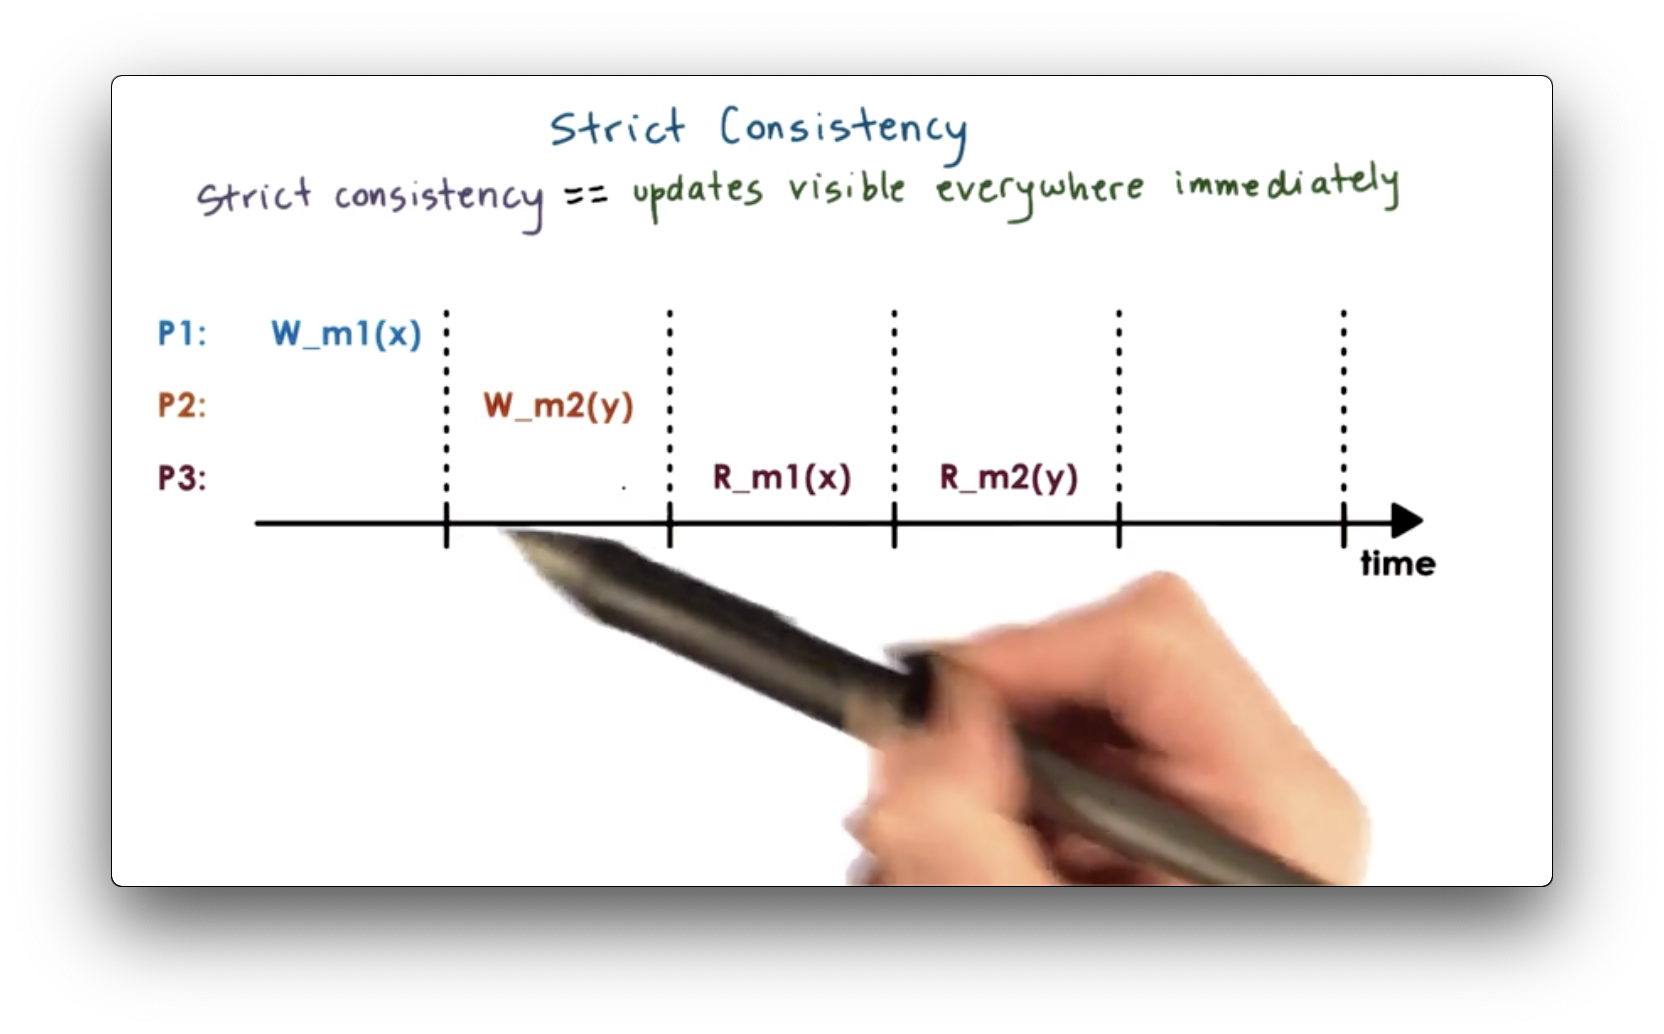 Strict Consistency
Strict consistency == updates visible everywhere immediately
P1: W_m1(x)
P2: W_m2(y)
P3: R_m1(x) R_m2(y)
time